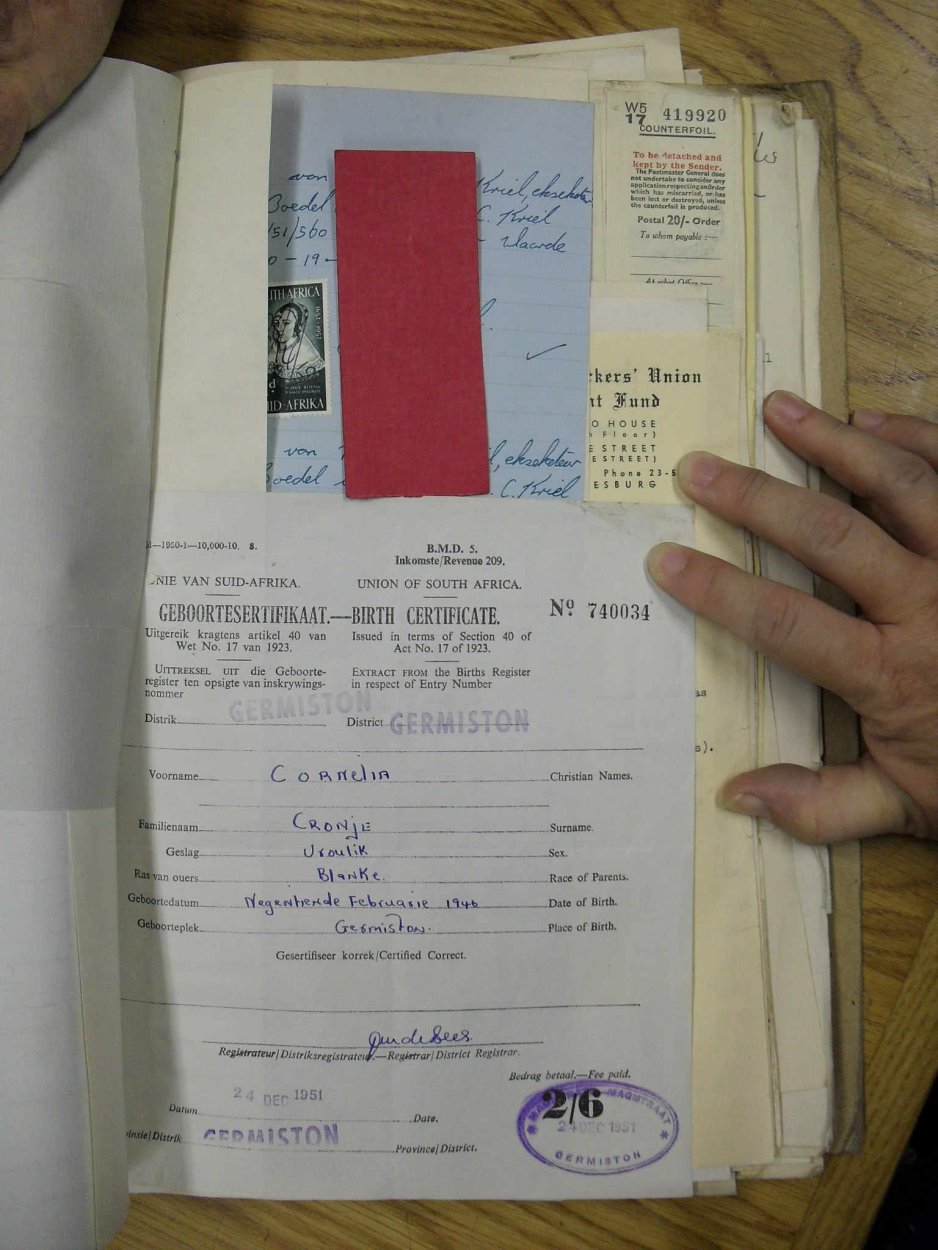 von
Kriel, eksekuteur
Boedel
C. Kriel
/51/560
Waarde
0-19-
TH AFRICA
1652-1952
ID-AFRIKA
von
, eksekuteur
Boedel
C. Kriel
W5
17 419920
COUNTERFOIL.
To be detached and
kept by the Sender.
The Postmaster General does
not undertake to consider any
application respecting an Order
which has miscarried, or has
been lost or destroyed, unless
the counterfoil is produced.
Postal 20/- Order
To whom payable :—
ckers' Union
nt Fund
O HOUSE
h Floor)
E STREET
E STREET)
Phone 23-5
ESBURG
—1950-1—10,000-10. 8.
B.M.D. 5.
Inkomste/Revenue 209.
NIE VAN SUID-AFRIKA.
UNION OF SOUTH AFRICA.
GEBOORTESERTIFIKAAT.—BIRTH CERTIFICATE.
No 740034
Uitgereik kragtens artikel 40 van
Wet No. 17 van 1923.
Issued in terms of Section 40 of
Act No. 17 of 1923.
UITTREKSEL UIT die Geboorte-
register ten opsigte van inskrywings-
nommer
EXTRACT FROM the Births Register
in respect of Entry Number
Distrik GERMISTON
District GERMISTON
Voorname Cornelia Christian Names.
Familienaam Cronje Surname.
Geslag Vroulik Sex.
Ras van ouers Blanke. Race of Parents.
Geboortedatum Negentiende Februarie 1946 Date of Birth.
Geboorteplek Germiston. Place of Birth.
Gesertifiseer korrek/Certified Correct.
Registrateur/Distriksregistrateur.—Registrar/District Registrar.
Bedrag betaal.—Fee paid.
2/6
Datum 24 DEC 1951 Date.
vinsie/Distrik GERMISTON Province/District.
MAGISTRAAT
24 DEC 1951
GERMISTON
as
s).